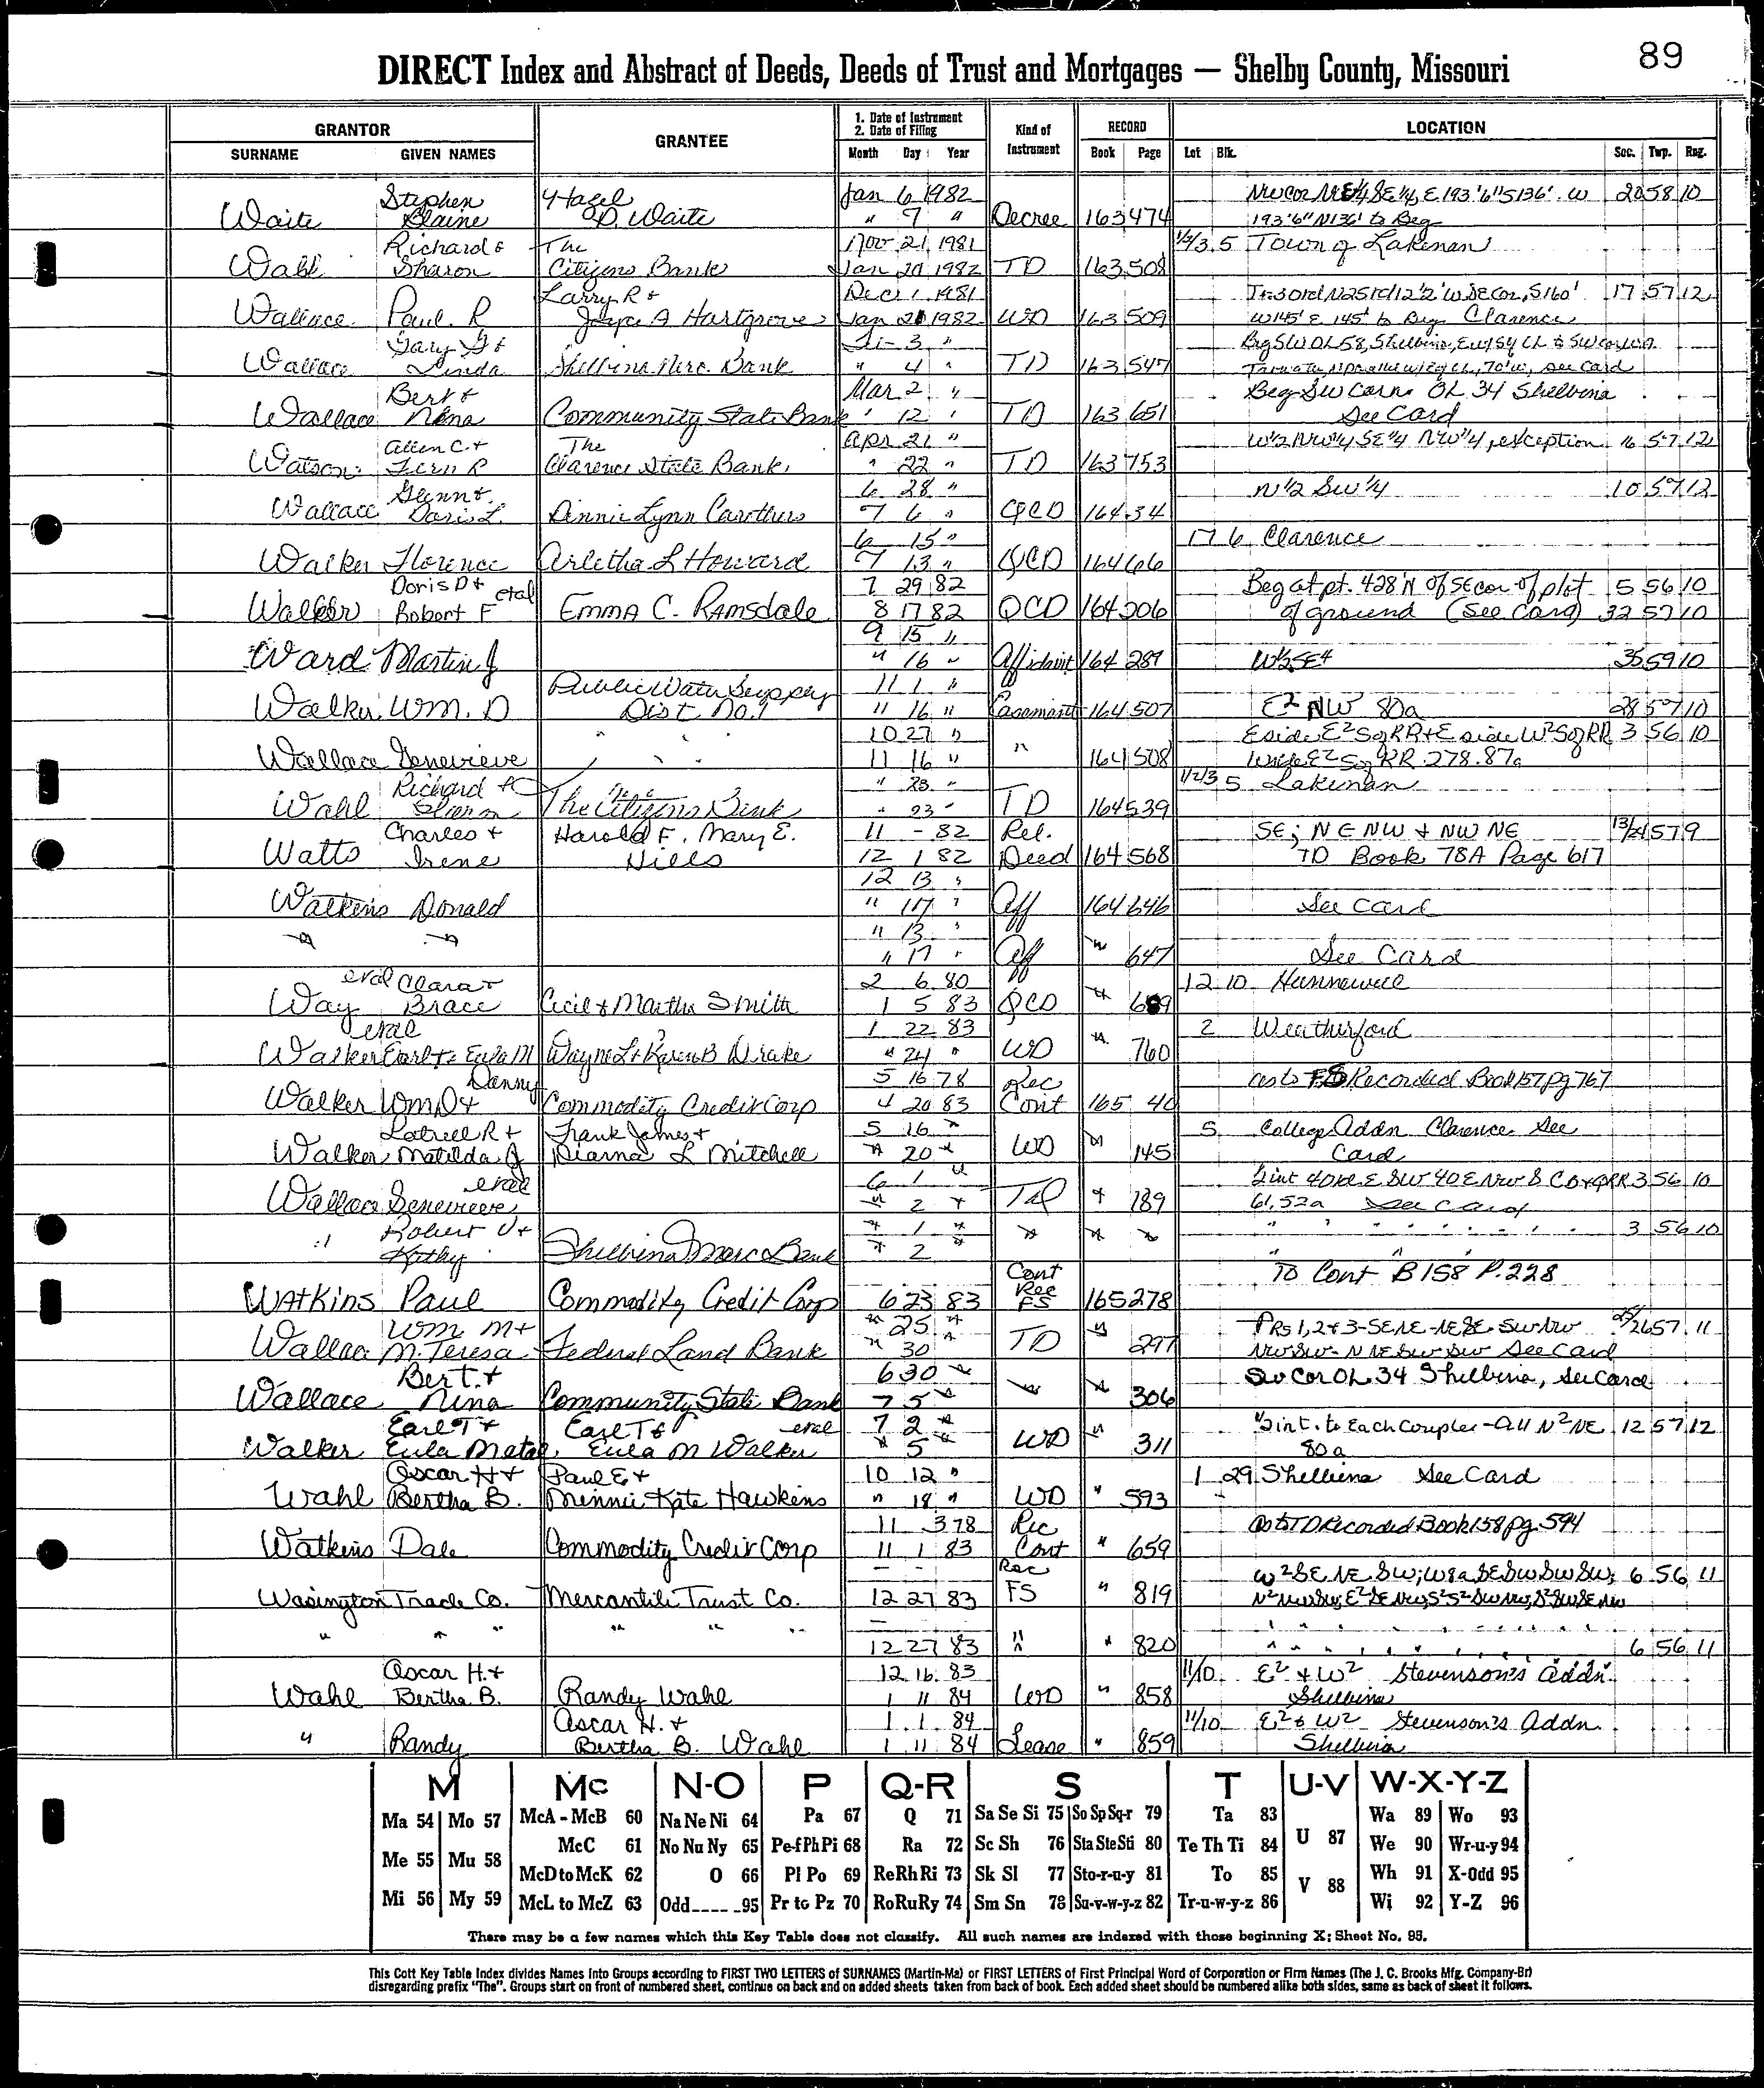 89
DIRECT Index and Abstract of Deeds, Deeds of Trust and Mortgages — Shelby County, Missouri
GRANTOR GRANTEE 1. Date of Instrument 2. Date of Filing Kind of Instrument RECORD LOCATION
SURNAME GIVEN NAMES Month Day Year Book Page Lot Blk. Sec. Twp. Rng.
Stephen Hazel Jan 6 1982 NW cor NE¼ SE¼, E 193'6" S136' W 20 58 10
Waite Blaine D. Waite " 7 " Decree 163 474 193'6" N136' to Beg
Richard & The Nov 21 1981 5 Town of Lakenan
Wahl Sharon Citizens Bank Jan 20 1982 TD 163 508
Larry R & Dec 1 1981 17 57 12
Wallace Paul R Joyce A Hartgrove Jan 21 1982 WD 163 509 W145' E 145' to Beg Clarence
Gary G & 3 " Beg SW OL 58, Shelbina,
Wallace Linda Shelbina Merc. Bank " 4 " TD 163 547 see Card
Bert & Mar 2 " Beg SW Corn OL 34 Shelbina
Wallace Nina Community State Bank " 12 " TD 163 651 See Card
Allen C. & The Apr 21 " W½ NW¼ SE¼ NW¼, exception 16 57 12
Watson Fern R Clarence State Bank " 22 " TD 163 753
Glenn & 6 28 " N½ SW¼ 10 57 12
Wallace Doris L. Dennie Lynn Carothers 7 6 " QCD 164 34
6 15 " 17 6 Clarence
Walker Florence Arletha L Howard 7 13 " QCD 164 66
Doris D & etal 7 29 82 Beg at pt. 428'N of SE cor of plot 5 56 10
Walker Robert F Emma C. Ramsdale 8 17 82 QCD 164 206 of ground (See Card) 32 57 10
9 15 "
Ward Martin J " 16 " Affidavit 164 289 W½ SE4 35 59 10
Public Water Supply 11 1 "
Walker Wm. D Dist. No. 1 " 16 " Easement 164 507 E² NW 80a 28 57 10
" " " 10 27 " E side E² S of RR & E side W² S of RR 3 56 10
Wallace Genevieve " " " 11 16 " " 164 508 E² S of RR 278.87a
Richard & " 23 " 1/2/3 5 Lakenan
Wahl Sharon The Citizens Bank " 23 " TD 164 539
Charles & Harold F. Mary E. 11 - 82 Rel. SE; NE NW & NW NE 57 9
Watts Irene Hills 12 1 82 Deed 164 568 TD Book 78A Page 617
12 13 "
Watkins Donald " 17 " Aff 164 646 See Card
" " " 13 "
" 17 " Aff " 647 See Card
etal Clara & 2 6 80 12 10 Hunnewell
Way Brace Cecil & Martha Smith 1 5 83 QCD " 689
etal 1 22 83 2 Weatherford
Walker Earl T & Eula M Wayne L & Karen B Drake " 24 " WD " 760
Danny 5 16 78 Rec as to FS Recorded Book 157 pg 767
Walker Wm D & Commodity Credit Corp 4 20 83 Cont 165 40
Latrell R & Frank James & 5 16 " 5 College Addn Clarence See
Walker Matilda J Dianna L Mitchell " 20 " WD " 145 Card
etal 6 1 " 3 56 10
Wallace Genevieve " 2 " TD " 189 61.52a See Card
Robert V & " 1 " " " " " 3 56 10
" Kathy Shelbina Merc Bank " 2 "
Cont To Cont B 158 P. 228
Watkins Paul Commodity Credit Corp 6 23 83 Rec FS 165 278
Wm M & " 25 " PRs 1, 2 & 3 - SE NE - NE SE - SW NW 57 11
Wallace M. Teresa Federal Land Bank " 30 TD " 297 NW SW - N NE SW SW See Card
Bert & 6 30 " SW Cor OL 34 Shelbina, See Card
Wallace Nina Community State Bank 7 5 " " " 306
Earl T & Earl T & etal 7 2 " ½ int. to Each Couple - All N² NE 12 57 12
Walker Eula M etal Eula M Walker " 5 " WD " 311 80a
Oscar H & Paul E & 10 12 " 1 29 Shelbina See Card
Wahl Bertha B. Minnie Kate Hawkins " 18 " WD " 593
11 3 78 Rec as to TD Recorded Book 158 pg. 594
Watkins Dale Commodity Credit Corp 11 1 83 Cont " 659
- - Rec W² SE NE SW; W8a SE SW SW SW; 6 56 11
Wasington Trade Co. Mercantile Trust Co. 12 27 83 FS " 819 N² NW SW; E² SE NW; S² S² SW NW; S² SW SE NW
" " " " " " -
12 27 83 " " 820 " " " 6 56 11
Oscar H. & 12 16 83 11/10 E² & W² Stevenson's Addn
Wahl Bertha B. Randy Wahl 1 11 84 WD " 858 Shelbina
Oscar H. & 1 1 84 11/10 E² & W² Stevenson's Addn
" Randy Bertha B. Wahl 1 11 84 Lease " 859 Shelbina
M Mc N-O P Q-R S T U-V W-X-Y-Z
Ma 54 Mo 57 McA - McB 60 Na Ne Ni 64 Pa 67 Q 71 Sa Se Si 75 So Sp Sq-r 79 Ta 83 U 87 Wa 89 Wo 93
Me 55 Mu 58 McC 61 No Nu Ny 65 Pe-f Ph Pi 68 Ra 72 Sc Sh 76 Sta Ste Sti 80 Te Th Ti 84 We 90 Wr-u-y 94
McD to McK 62 O 66 Pl Po 69 Re Rh Ri 73 Sk Sl 77 Sto-r-u-y 81 To 85 V 88 Wh 91 X-Odd 95
Mi 56 My 59 McL to McZ 63 Odd_____95 Pr to Pz 70 Ro Ru Ry 74 Sm Sn 78 Su-v-w-y-z 82 Tr-u-w-y-z 86 Wi 92 Y-Z 96
There may be a few names which this Key Table does not classify. All such names are indexed with those beginning X; Sheet No. 95.
This Cott Key Table Index divides Names into Groups according to FIRST TWO LETTERS of SURNAMES (Martin-Ma) or FIRST LETTERS of First Principal Word of Corporation or Firm Names (The J. C. Brooks Mfg. Company-Br)
disregarding prefix "The". Groups start on front of numbered sheet, continue on back and on added sheets taken from back of book. Each added sheet should be numbered alike both sides, same as back of sheet it follows.